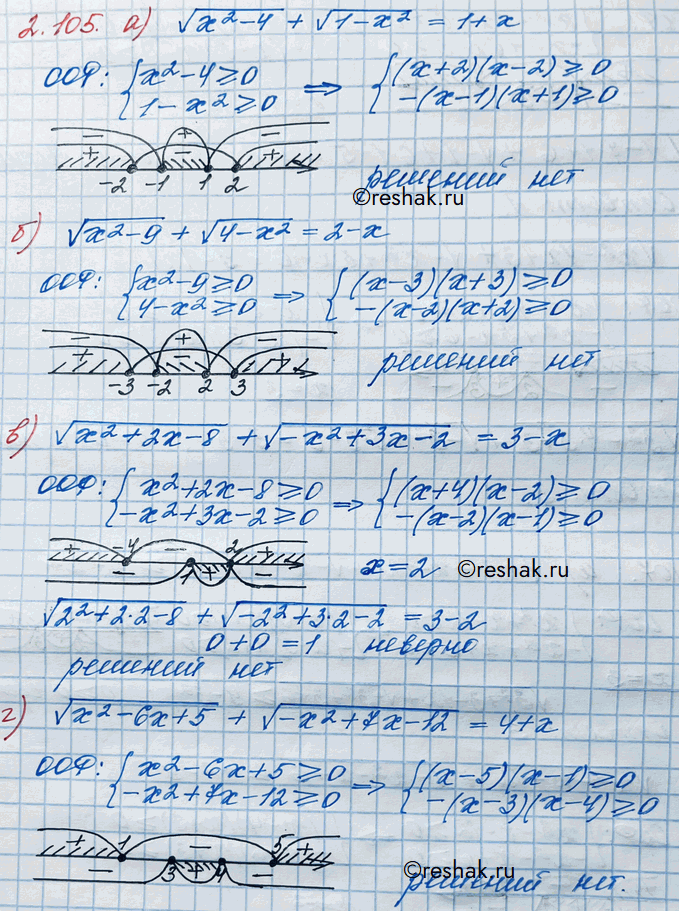 2.105. а) √(x²-4) + √(1-x²) = 1+x
ООФ: {x²-4≥0 ⇒ {(x+2)(x-2)≥0
{1-x²≥0 {-(x-1)(x+1)≥0
- + -
+ - +
-2 -1 1 2
решений нет
©reshak.ru
б) √(x²-9) + √(4-x²) = 2-x
ООФ: {x²-9≥0 ⇒ {(x-3)(x+3)≥0
{4-x²≥0 {-(x-2)(x+2)≥0
- + -
+ - +
-3 -2 2 3
решений нет
в) √(x²+2x-8) + √(-x²+3x-2) = 3-x
ООФ: {x²+2x-8≥0 ⇒ {(x+4)(x-2)≥0
{-x²+3x-2≥0 {-(x-2)(x-1)≥0
+ -4 - 2 +
- 1 + -
x=2
©reshak.ru
√(2²+2·2-8) + √(-2²+3·2-2) = 3-2
0+0=1 неверно
решений нет
г) √(x²-6x+5) + √(-x²+7x-12) = 4+x
ООФ: {x²-6x+5≥0 ⇒ {(x-5)(x-1)≥0
{-x²+7x-12≥0 {-(x-3)(x-4)≥0
+ 1 - 5 +
- 3 + 4 -
©reshak.ru
решений нет.